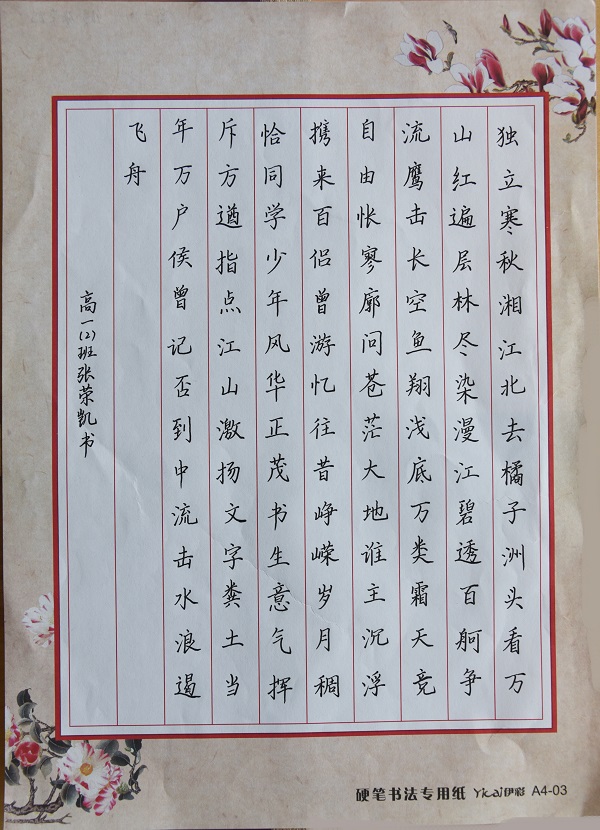 独立寒秋湘江北去橘子洲头看万
山红遍层林尽染漫江碧透百舸争
流鹰击长空鱼翔浅底万类霜天竞
自由怅寥廓问苍茫大地谁主沉浮
携来百侣曾游忆往昔峥嵘岁月稠
恰同学少年风华正茂书生意气挥
斥方遒指点江山激扬文字粪土当
年万户侯曾记否到中流击水浪遏
飞舟
高一(2)班张荣凯书
硬笔书法专用纸 Yicai伊彩 A4-03